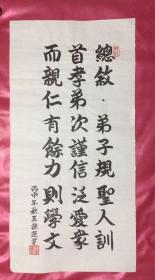 總敘·弟子規聖人訓
首孝弟次謹信泛愛衆
而親仁有餘力則學文
丙申年秋王